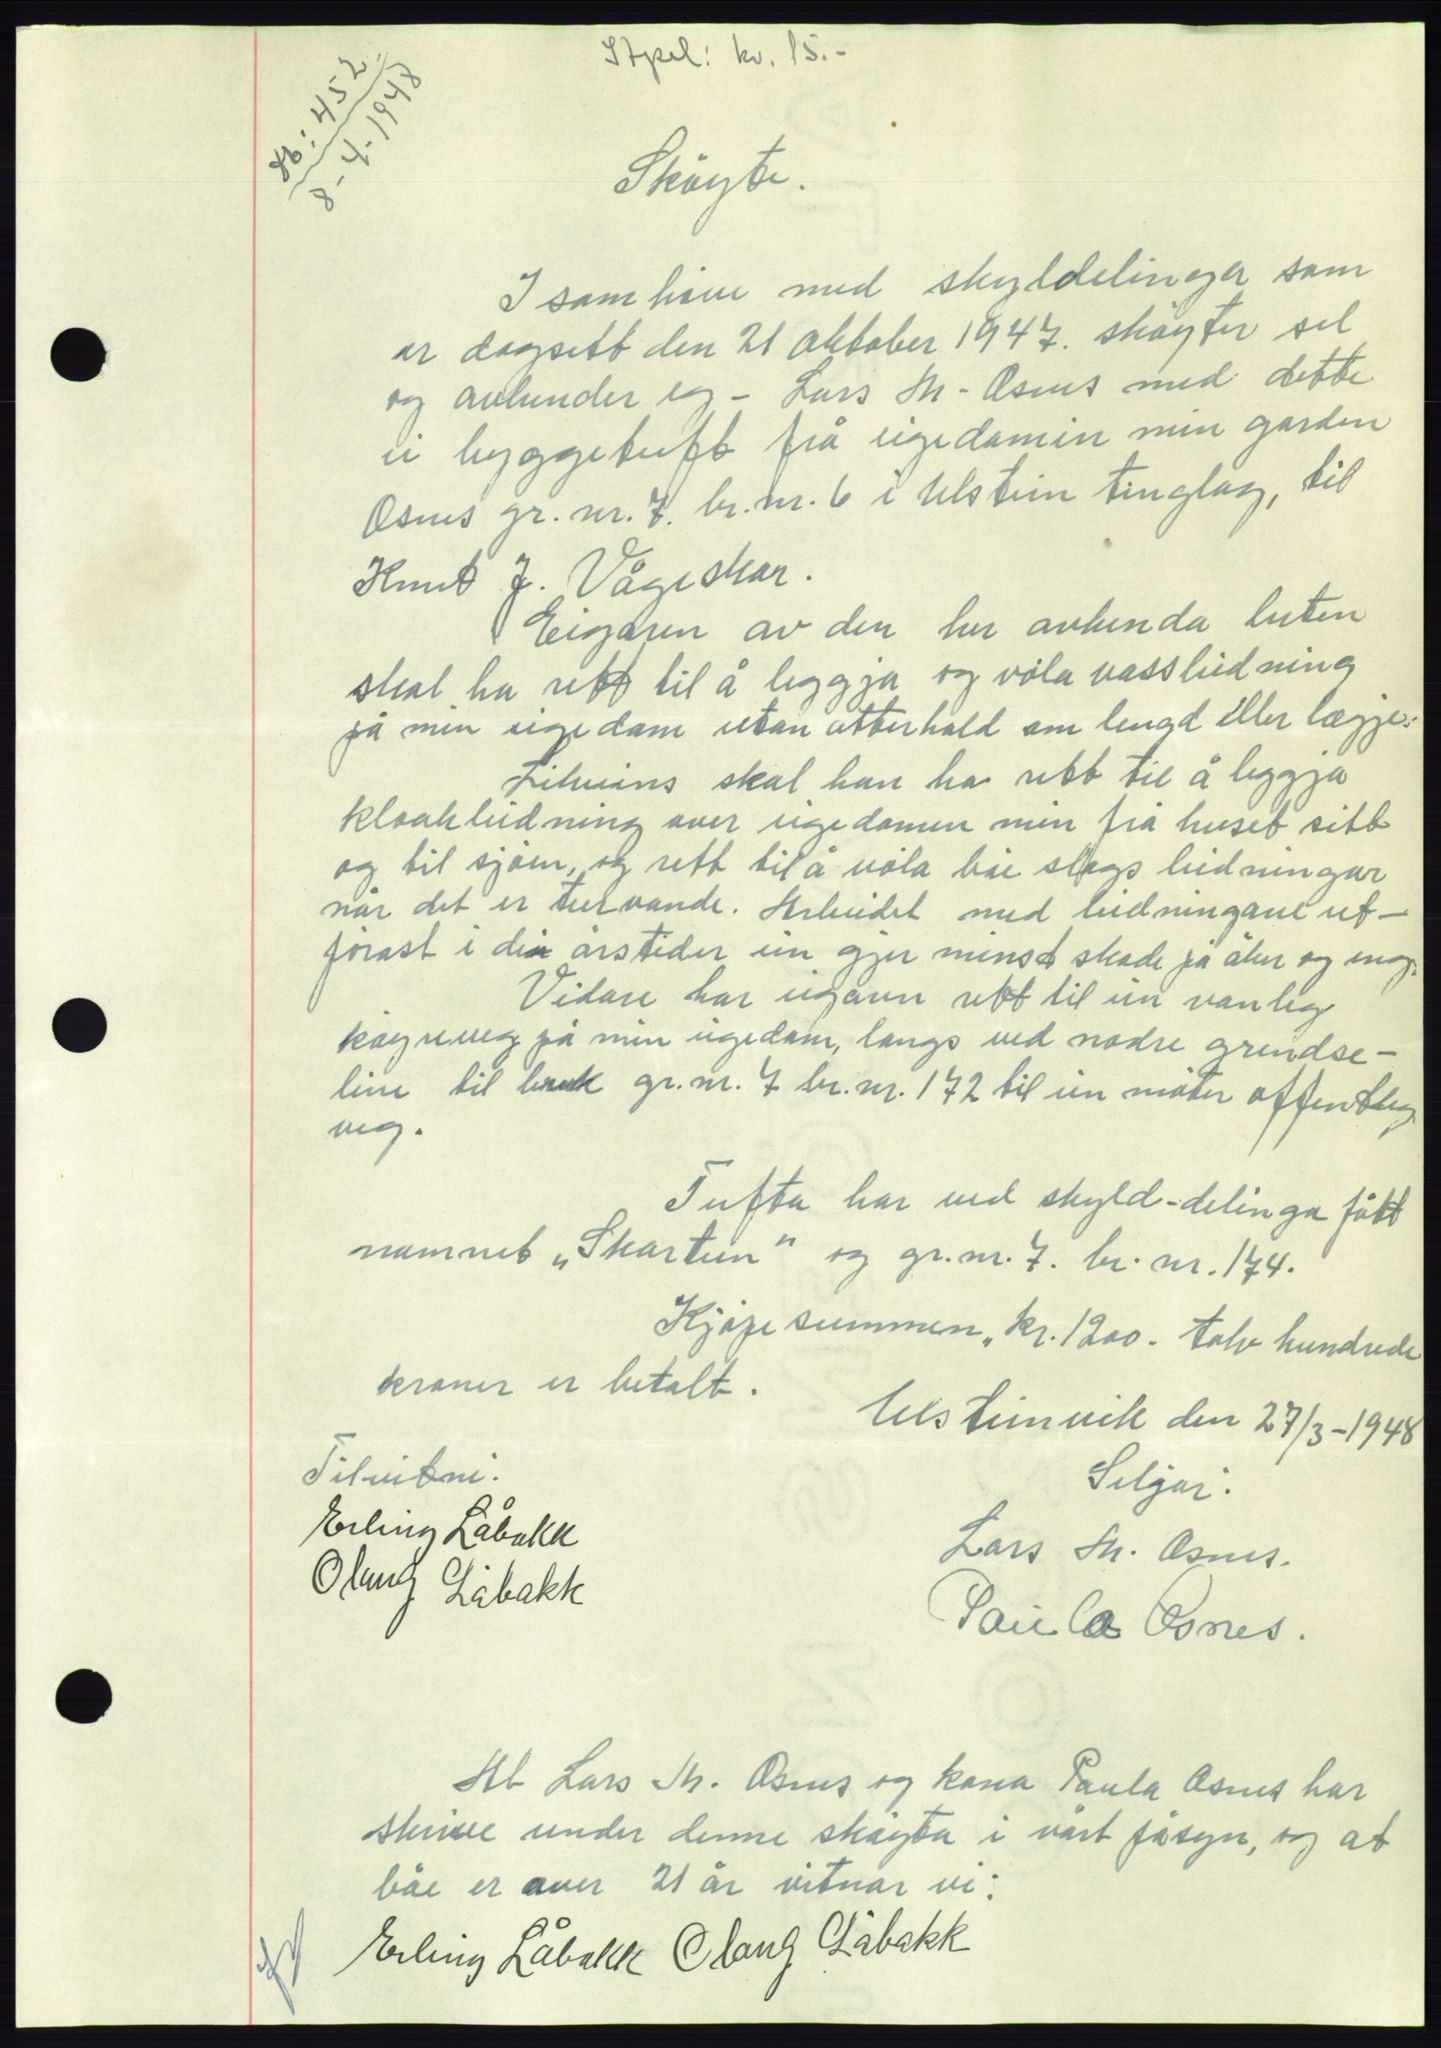 Stpel: kr. 15.-
Nb: 452
8-4-1948
Sköyte.
I samhöve med skyldelinger som
er dagsett den 21 oktober 1947. sköyter sel
og avhender eg - Lars M. Osnes med dette
ei byggetuft frå eigedomen min garden
Osnes gr. nr. 7. br. nr. 6 i Ulstein tinglag, til
Knut J. Vågeskar.
Eigaren av den her avhenda luten
skal ha rett til å leggja og völa vassleidning
på min eigedom utan atterhald om lengd eller lægje.
Likeeins skal han ha rett til å leggja
kloakleidning over eigedomen min frå huset sitt
og til sjöen, og rett til å völa båe slags leidningar
når det er turvande. Arbeidet med leidningane ut-
förast i dei årstider ein gjer minst skade på åker og eng.
Vidare har eigaren rett til ein vanleg
köyreveg på min eigedom, langs ved nodre grendse-
line til bruk gr. nr. 7 br. nr. 172 til ein möter offentleg
veg.
Tufta har ved skyld-delinga fått
namnet „Skartun" og gr. nr. 7. br. nr. 174.
Kjöpesummen, kr. 1200.- tolv hundrede
kroner er betalt.
Ulsteinvik den 27/3-1948
Tilvitni:
Seljar:
Erling Låbakk
Lars M. Osnes.
Olaug Låbakk
Paula Osnes.
At Lars M. Osnes og kona Paula Osnes har
skrive under denne sköyta i vårt påsyn, og at
båe er over 21 år vitnar vi:
Erling Låbakk Olaug Låbakk